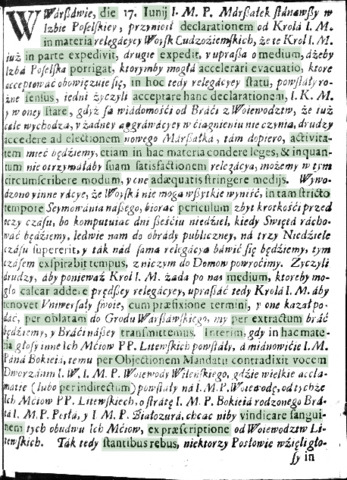 W Wárßáwie, die 17. Iunij I. M. P. Márßałek stánąwßy w
Izbie Poselskiey, przyniosł declarationem od Krolá I. M.
in materia relegácyey Woysk Cudzoźiemskich, że te Krol I. M.
iuż in parte expedivit, drugie expedit, y upraßa o medium, áżeby
Izbá Poselska porrigat, ktorymby mogłá accelerari evacuatio, ktore
acceptowáć obowięzuie się, in hoc tedy relegácyey statu, powstáły ro-
żne sensius, iedni życzyli acceptare hanc declarationem, I. K. M.
y w oney stare, gdyż są wiádomośći od Bráći z Woiewodztw, że iuż
cále wychodzą, y żadney aggrawácyey w ćiągnieniu nie czynią, drudzy
accedere ad electionem nowego Márßałká, tám dopiero, activita-
tem mieć będźiemy, etiam in hac materia condere leges, & inquan-
tum nie otrzymáłáby suam satisfactionem relegácya, możemy w tym
circumscribere modum, y one adæquatis stringere medijs. Wywo-
dzono yinne rácye, że Woyská nie mogą wprętkce wynić, in tam stricto
tempore Seymowánia naßego, biorąc periculum zbyt krotkośći przed
tcy czásu, bo komputuiąc dni sześćiu niedźiel, kiedy Swiętá rácho-
wáć będźiemy, ledwie nam do obrády publiczney, ná trzy Niedźiele
czásu supererit, y ták nád sámą relegácyą báwić się będźiemy, tym
czásem exspirabit tempus, z niczym do Domow powroćimy. Zyczyli
drudzy, áby ponieważ Krol I. M. żąda po nas medium, ktoreby mo-
gło calcar addere prędßey relegácyey, upráßáć tedy Krolá I. M. áby
renovet Vniwersáły swoie, cum præfixione termini, y one kazał po-
dáć, per oblatam do Grodu Wárßáwskiego, my per extractum bráć
będźiemy, y Bráći náßey transmittemus. Interim, gdy in hac mate-
ria głosy inne Ich Mćiow PP. Litewskich powstáły, á miánowićie I. M.
Páná Bokieiá, temu per Objectionem Mandati contradixit vocem
Dworzánin I. W. I. M. P. Woiewody Wileńskiego, gdźie wielkie acclá-
matie (lubo per indirectum) powstáły ná I. M. P. Woiewodę, od tychże
Ich Mćiow PP. Litewskiech, o stratę I. M. P. Bokieiá rodzonego Brá-
tá I. M. P. Posłá, y I. M. P. Białozurá, chcąc niby vindicare sangui-
nem tych obudwu Ich Mćiow, ex præscriptione od Woiewodztw Li-
tewskich. Ták tedy stantibus rebus, niektorzy Posłowie wźięli gło-
sy in